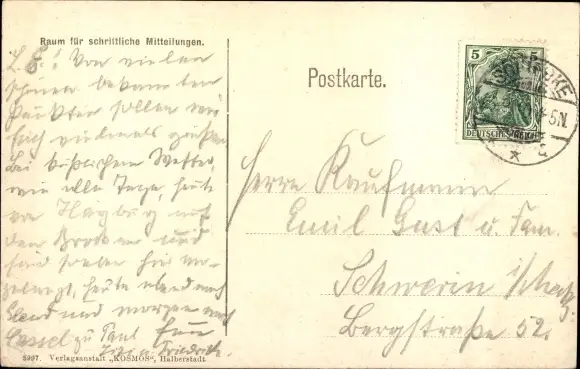 Raum für schriftliche Mitteilungen.
L. E.! Von vielen
schönen bekannten
Punkten sollen wir
Euch vielmals grüßen
bei
Wetter,
wie alle Tage, heute
von Harzburg auf
den Brocken und
sind soeben hier an-
gelangt, heute Abend noch
und morgen nach
Cassel zu Paul
Friedrich.
8397. Verlagsanstalt „KOSMOS“, Halberstadt
Postkarte.
5 5
DEUTSCHES REICH
SCHIERKE
4-5N.
Herrn Kaufmann
Emil Gust u. Fam.
Schwerin i/
Bergstraße 52.